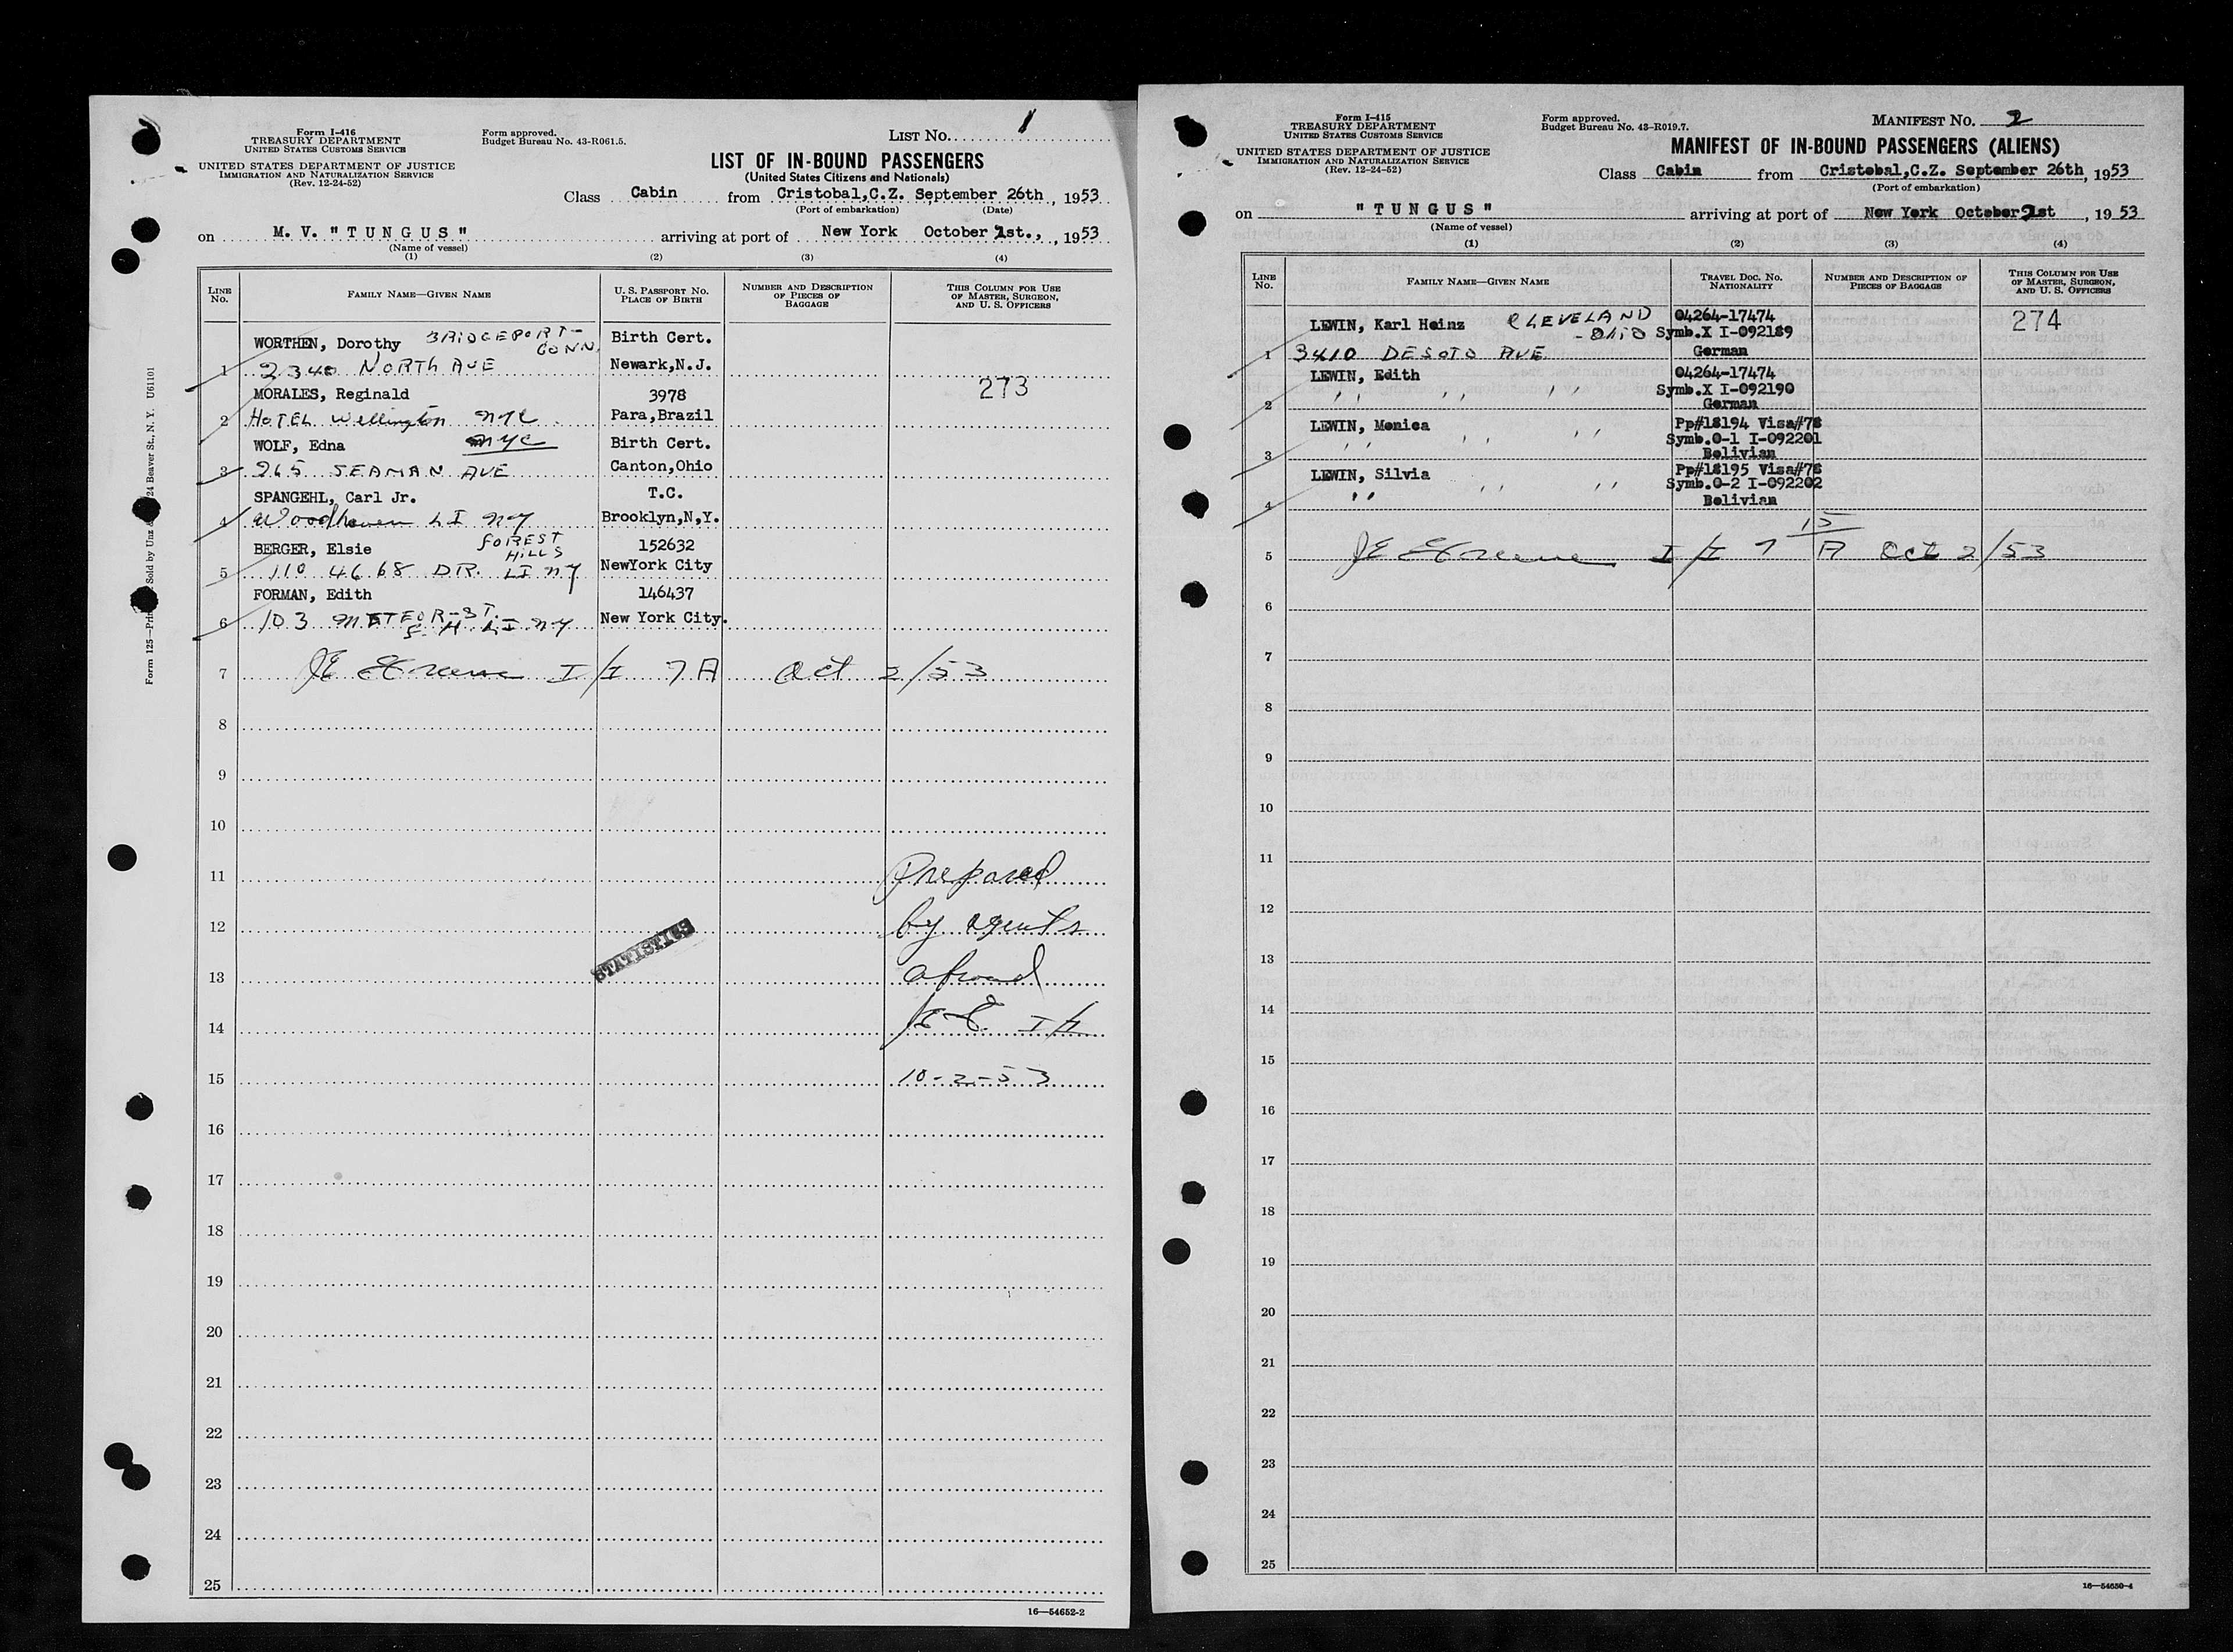 Form I-416
TREASURY DEPARTMENT
UNITED STATES CUSTOMS SERVICE
UNITED STATES DEPARTMENT OF JUSTICE
IMMIGRATION AND NATURALIZATION SERVICE
(Rev. 12-24-52)
Form approved.
Budget Bureau No. 43-R061.5.
LIST NO. 1
LIST OF IN-BOUND PASSENGERS
(United States Citizens and Nationals)
Class Cabin from Cristobal,C.Z. September 26th, 1953
(Port of embarkation) (Date)
on M. V. "TUNGUS" arriving at port of New York October 2st., 1953
(Name of vessel)
(1) (2) (3) (4)
LINE NO. FAMILY NAME—GIVEN NAME U. S. PASSPORT NO. PLACE OF BIRTH NUMBER AND DESCRIPTION OF PIECES OF BAGGAGE THIS COLUMN FOR USE OF MASTER, SURGEON, AND U. S. OFFICERS
WORTHEN, Dorothy BRIDGEPORT- CONN. Birth Cert.
1 2340 NORTH AVE Newark,N.J.
MORALES, Reginald 3978 273
2 HOTEL Wellington NYC Para,Brazil
WOLF, Edna NYC Birth Cert.
3 265 SEAMAN AVE Canton,Ohio
SPANGEHL, Carl Jr. T.C.
4 Woodhaven LI NY Brooklyn,N,Y.
BERGER, Elsie FOREST HILLS 152632
5 110 46 68 DR. LI NY NewYork City
FORMAN, Edith 146437
6 103 METEOR ST. F H LI NY New York City.
7 JE Greene I/I 7 A Oct 2/53
8
9
10
11 Prepared
12 by agents
STATISTICS
13 abroad
14 I/I
15 10-2-53
16
17
18
19
20
21
22
23
24
25
16—54652-2
Form 125—Sold by Unz 24 Beaver St., N. Y. U61101
Form I-415
TREASURY DEPARTMENT
UNITED STATES CUSTOMS SERVICE
UNITED STATES DEPARTMENT OF JUSTICE
IMMIGRATION AND NATURALIZATION SERVICE
(Rev. 12-24-52)
Form approved.
Budget Bureau No. 43-R019.7.
MANIFEST NO. 2
MANIFEST OF IN-BOUND PASSENGERS (ALIENS)
Class Cabin from Cristobal,C.Z. September 26th, 1953
(Port of embarkation)
on "TUNGUS" arriving at port of New York October 2st, 1953
(Name of vessel)
(1) (2) (3) (4)
LINE NO. FAMILY NAME—GIVEN NAME TRAVEL DOC. NO. NATIONALITY NUMBER AND DESCRIPTION OF PIECES OF BAGGAGE THIS COLUMN FOR USE OF MASTER, SURGEON, AND U. S. OFFICERS
04264-17474 274
LEWIN, Karl Heinz CLEVELAND - OHIO Symb.X I-092189
1 3410 DESOTO AVE German
LEWIN, Edith 04264-17474
,, ,, ,, Symb.X I-092190
2 German
LEWIN, Monica Pp#18194 Visa#78
,, ,, ,, Symb.O-1 I-092201
3 Bolivian
LEWIN, Silvia Pp#18195 Visa#78
,, ,, ,, Symb.O-2 I-092202
4 Bolivian
5 JE Greene I/I 7 15/A Oct 2/53
6
7
8
9
10
11
12
13
14
15
16
17
18
19
20
21
22
23
24
25
16—54650-4